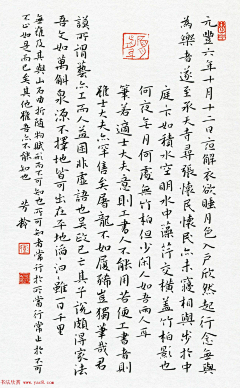 元豐六年十月十二日夜解衣欲睡月色入户欣然起行念無與
為樂者遂至承天寺尋張懷民懷民亦未寢相與步於中
庭下如積水空明水中藻荇交橫蓋竹柏影也
何夜無月何處無竹柏但少閒人如吾兩人耳
筆若適士大夫意則工書人不能用若便工書者則
雖士大夫亦罕售矣屠龍不如履狶豈獨筆哉君
謨所謂藝益工而人益困非虛語也吳政已亡其子說頗得家法
吾文如萬斛泉源不擇地皆可出在平地滔滔汩汩雖一日千里
無難及其與山石曲折隨物賦形而不可知也所可知者常行於所當行常止於不可
不止如是而已矣其他雖吾亦不能知也